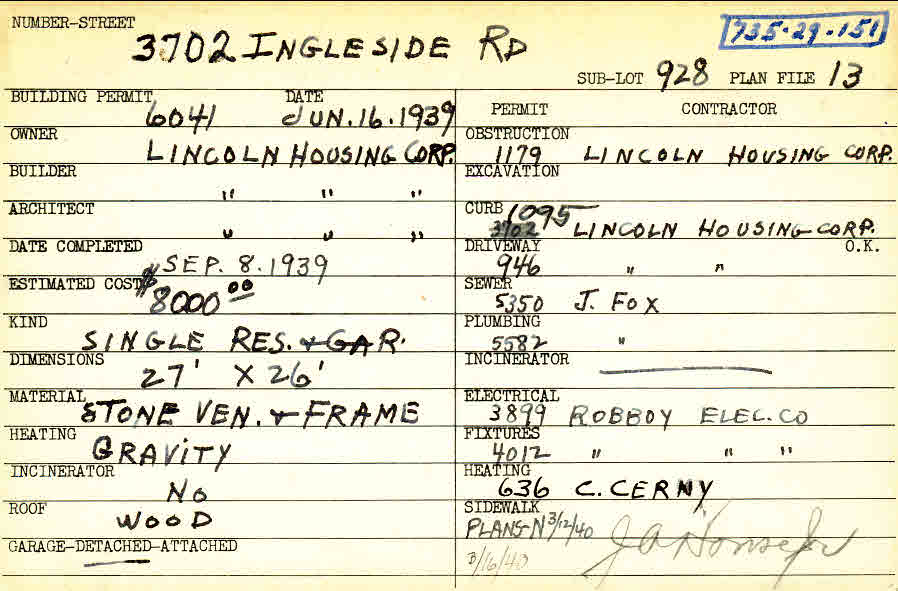 NUMBER-STREET
3702 INGLESIDE RD
735-29-151
SUB-LOT 928 PLAN FILE 13
BUILDING PERMIT 6041 DATE JUN. 16. 1939
OWNER LINCOLN HOUSING CORP.
BUILDER " " "
ARCHITECT " " "
DATE COMPLETED SEP. 8. 1939
ESTIMATED COST $8000 00
KIND SINGLE RES. & GAR.
DIMENSIONS 27' X 26'
MATERIAL STONE VEN. & FRAME
HEATING GRAVITY
INCINERATOR NO
ROOF WOOD
GARAGE-DETACHED-ATTACHED
PERMIT CONTRACTOR
OBSTRUCTION 1179 LINCOLN HOUSING CORP.
EXCAVATION
CURB 1095 3702 LINCOLN HOUSING CORP.
DRIVEWAY 946 " " O.K.
SEWER 5350 J. FOX
PLUMBING 5582 "
INCINERATOR
ELECTRICAL 3899 ROBBOY ELEC. CO
FIXTURES 4012 " " "
HEATING 636 C. CERNY
SIDEWALK
PLANS-N 3/12/40
3/16/40